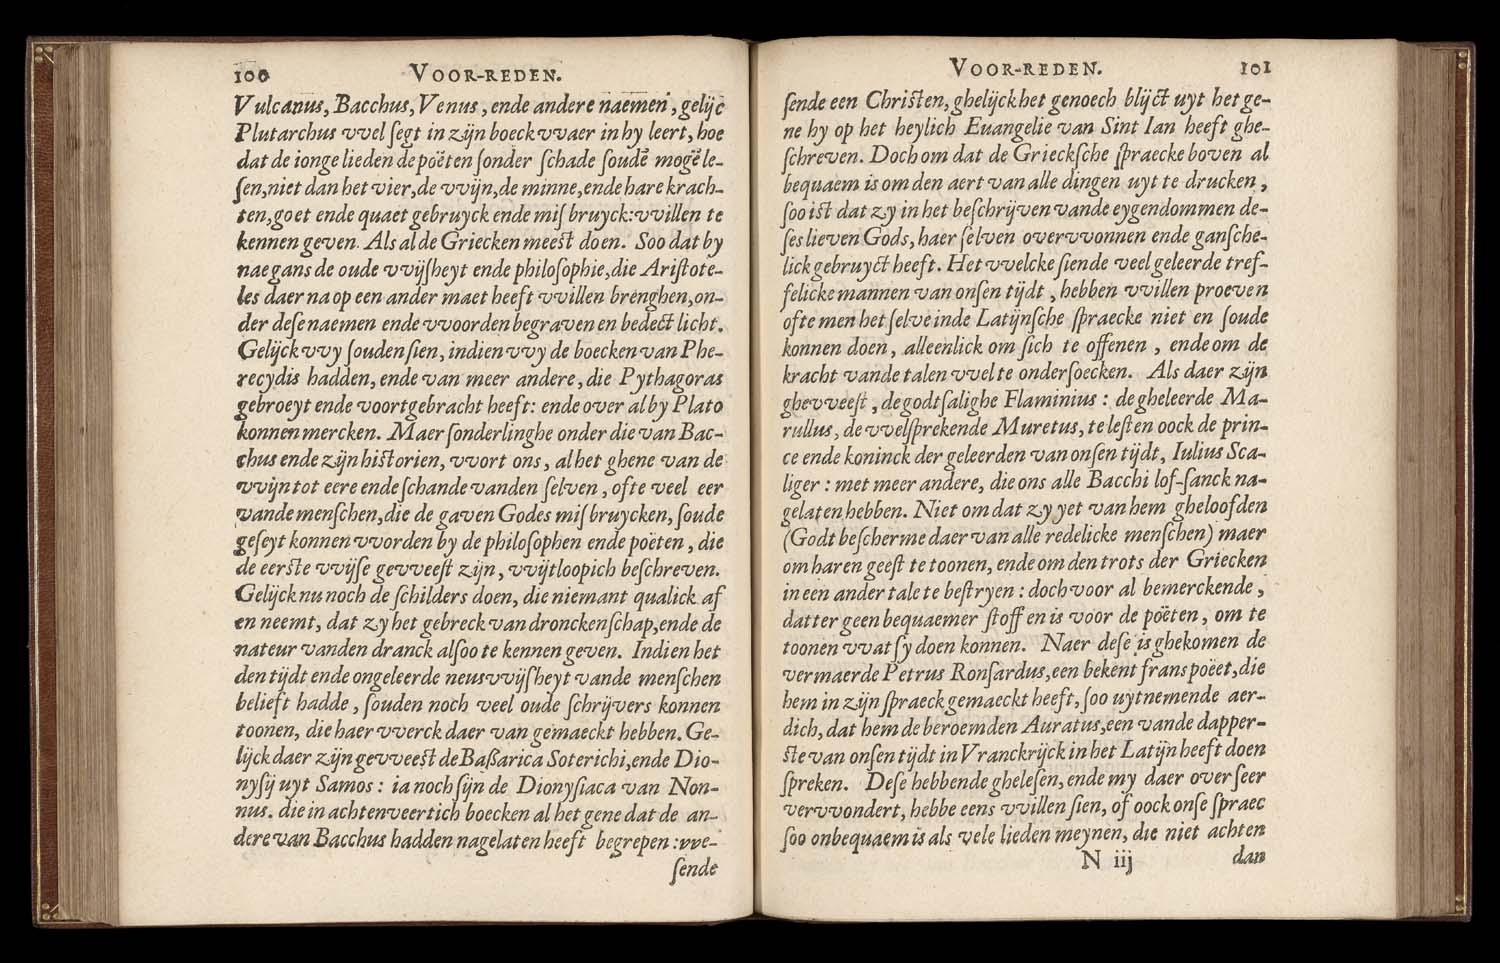 100 VOOR-REDEN.
Vulcanus, Bacchus, Venus, ende andere naemen, gelijc
Plutarchus vvel ſegt in zijn boeck vvaer in hy leert, hoe
dat de ionge lieden de poëten ſonder ſchade ſoudẽ mogẽ le-
ſen, niet dan het vier, de vvijn, de minne, ende hare krach-
ten, goet ende quaet gebruyck ende miſbruyck: vvillen te
kennen geven. Als al de Griecken meest doen. Soo dat by
nae gans de oude vvijſheyt ende philoſophie, die Ariſtote-
les daer na op een ander maet heeft vvillen brenghen, on-
der deſe naemen ende vvoorden begraven en bedect licht.
Gelijck vvy ſouden ſien, indien vvy de boecken van Phe-
recydis hadden, ende van meer andere, die Pythagoras
gebroeyt ende voortgebracht heeft: ende over al by Plato
konnen mercken. Maer ſonderlinghe onder die van Bac-
chus ende zijn historien, vvort ons, al het ghene van de
vvijn tot eere ende ſchande vanden ſelven, ofte veel eer
vande menſchen, die de gaven Godes miſbruycken, ſoude
geſeyt konnen vvorden by de philoſophen ende poëten, die
de eerste vvijſe gevveeſt zijn, vvijtloopich beſchreven.
Gelijck nu noch de ſchilders doen, die niemant qualick af
en neemt, dat zy het gebreck van dronckenſchap, ende de
nateur vanden dranck alſoo te kennen geven. Indien het
den tijdt ende ongeleerde neusvvijſheyt vande menſchen
belieft hadde, ſouden noch veel oude ſchrijvers konnen
toonen, die haer vverck daer van gemaeckt hebben. Ge-
lijck daer zijn gevveest de Baßarica Soterichi, ende Dio-
nyſij uyt Samos: ia noch ſijn de Dionyſiaca van Non-
nus. die in achtenveertich boecken al het gene dat de an-
dere van Bacchus hadden nagelaten heeft begrepen: vve-
ſende
VOOR-REDEN. 101
ſende een Christen, ghelijck het genoech blijct uyt het ge-
ne hy op het heylich Euangelie van Sint Ian heeft ghe-
ſchreven. Doch om dat de Grieckſche ſpraecke boven al
bequaem is om den aert van alle dingen uyt te drucken,
ſoo ist dat zy in het beſchrijven vande eygendommen de-
ſes lieven Gods, haer ſelven overvvonnen ende ganſche-
lick gebruyct heeft. Het vvelcke ſiende veel geleerde tref-
felicke mannen van onſen tijdt, hebben vvillen proeven
ofte men het ſelve inde Latijnſche ſpraecke niet en ſoude
konnen doen, alleenlick om ſich te offenen, ende om de
kracht vande talen vvel te onderſoecken. Als daer zijn
ghevveeſt, de godtſalighe Flaminius: de gheleerde Ma-
rullus, de vvelſprekende Muretus, te leſten oock de prin-
ce ende koninck der geleerden van onſen tijdt, Iulius Sca-
liger: met meer andere, die ons alle Bacchi lof-ſanck na-
gelaten hebben. Niet om dat zy yet van hem gheloofden
(Godt beſcherme daer van alle redelicke menſchen) maer
om haren geeſt te toonen, ende om den trots der Griecken
in een ander tale te beſtryen: doch voor al bemerckende,
datter geen bequaemer ſtoff en is voor de poëten, om te
toonen vvat ſy doen konnen. Naer deſe is ghekomen de
vermaerde Petrus Ronſardus, een bekent frans poëet, die
hem in zijn ſpraeck gemaeckt heeft, ſoo uytnemende aer-
dich, dat hem de beroemden Auratus, een vande dapper-
ste van onſen tijdt in Vranckrijck in het Latijn heeft doen
ſpreken. Deſe hebbende gheleſen, ende my daer over ſeer
vervvondert, hebbe eens vvillen ſien, of oock onſe ſpraec
ſoo onbequaem is als vele lieden meynen, die niet achten
N iij dan